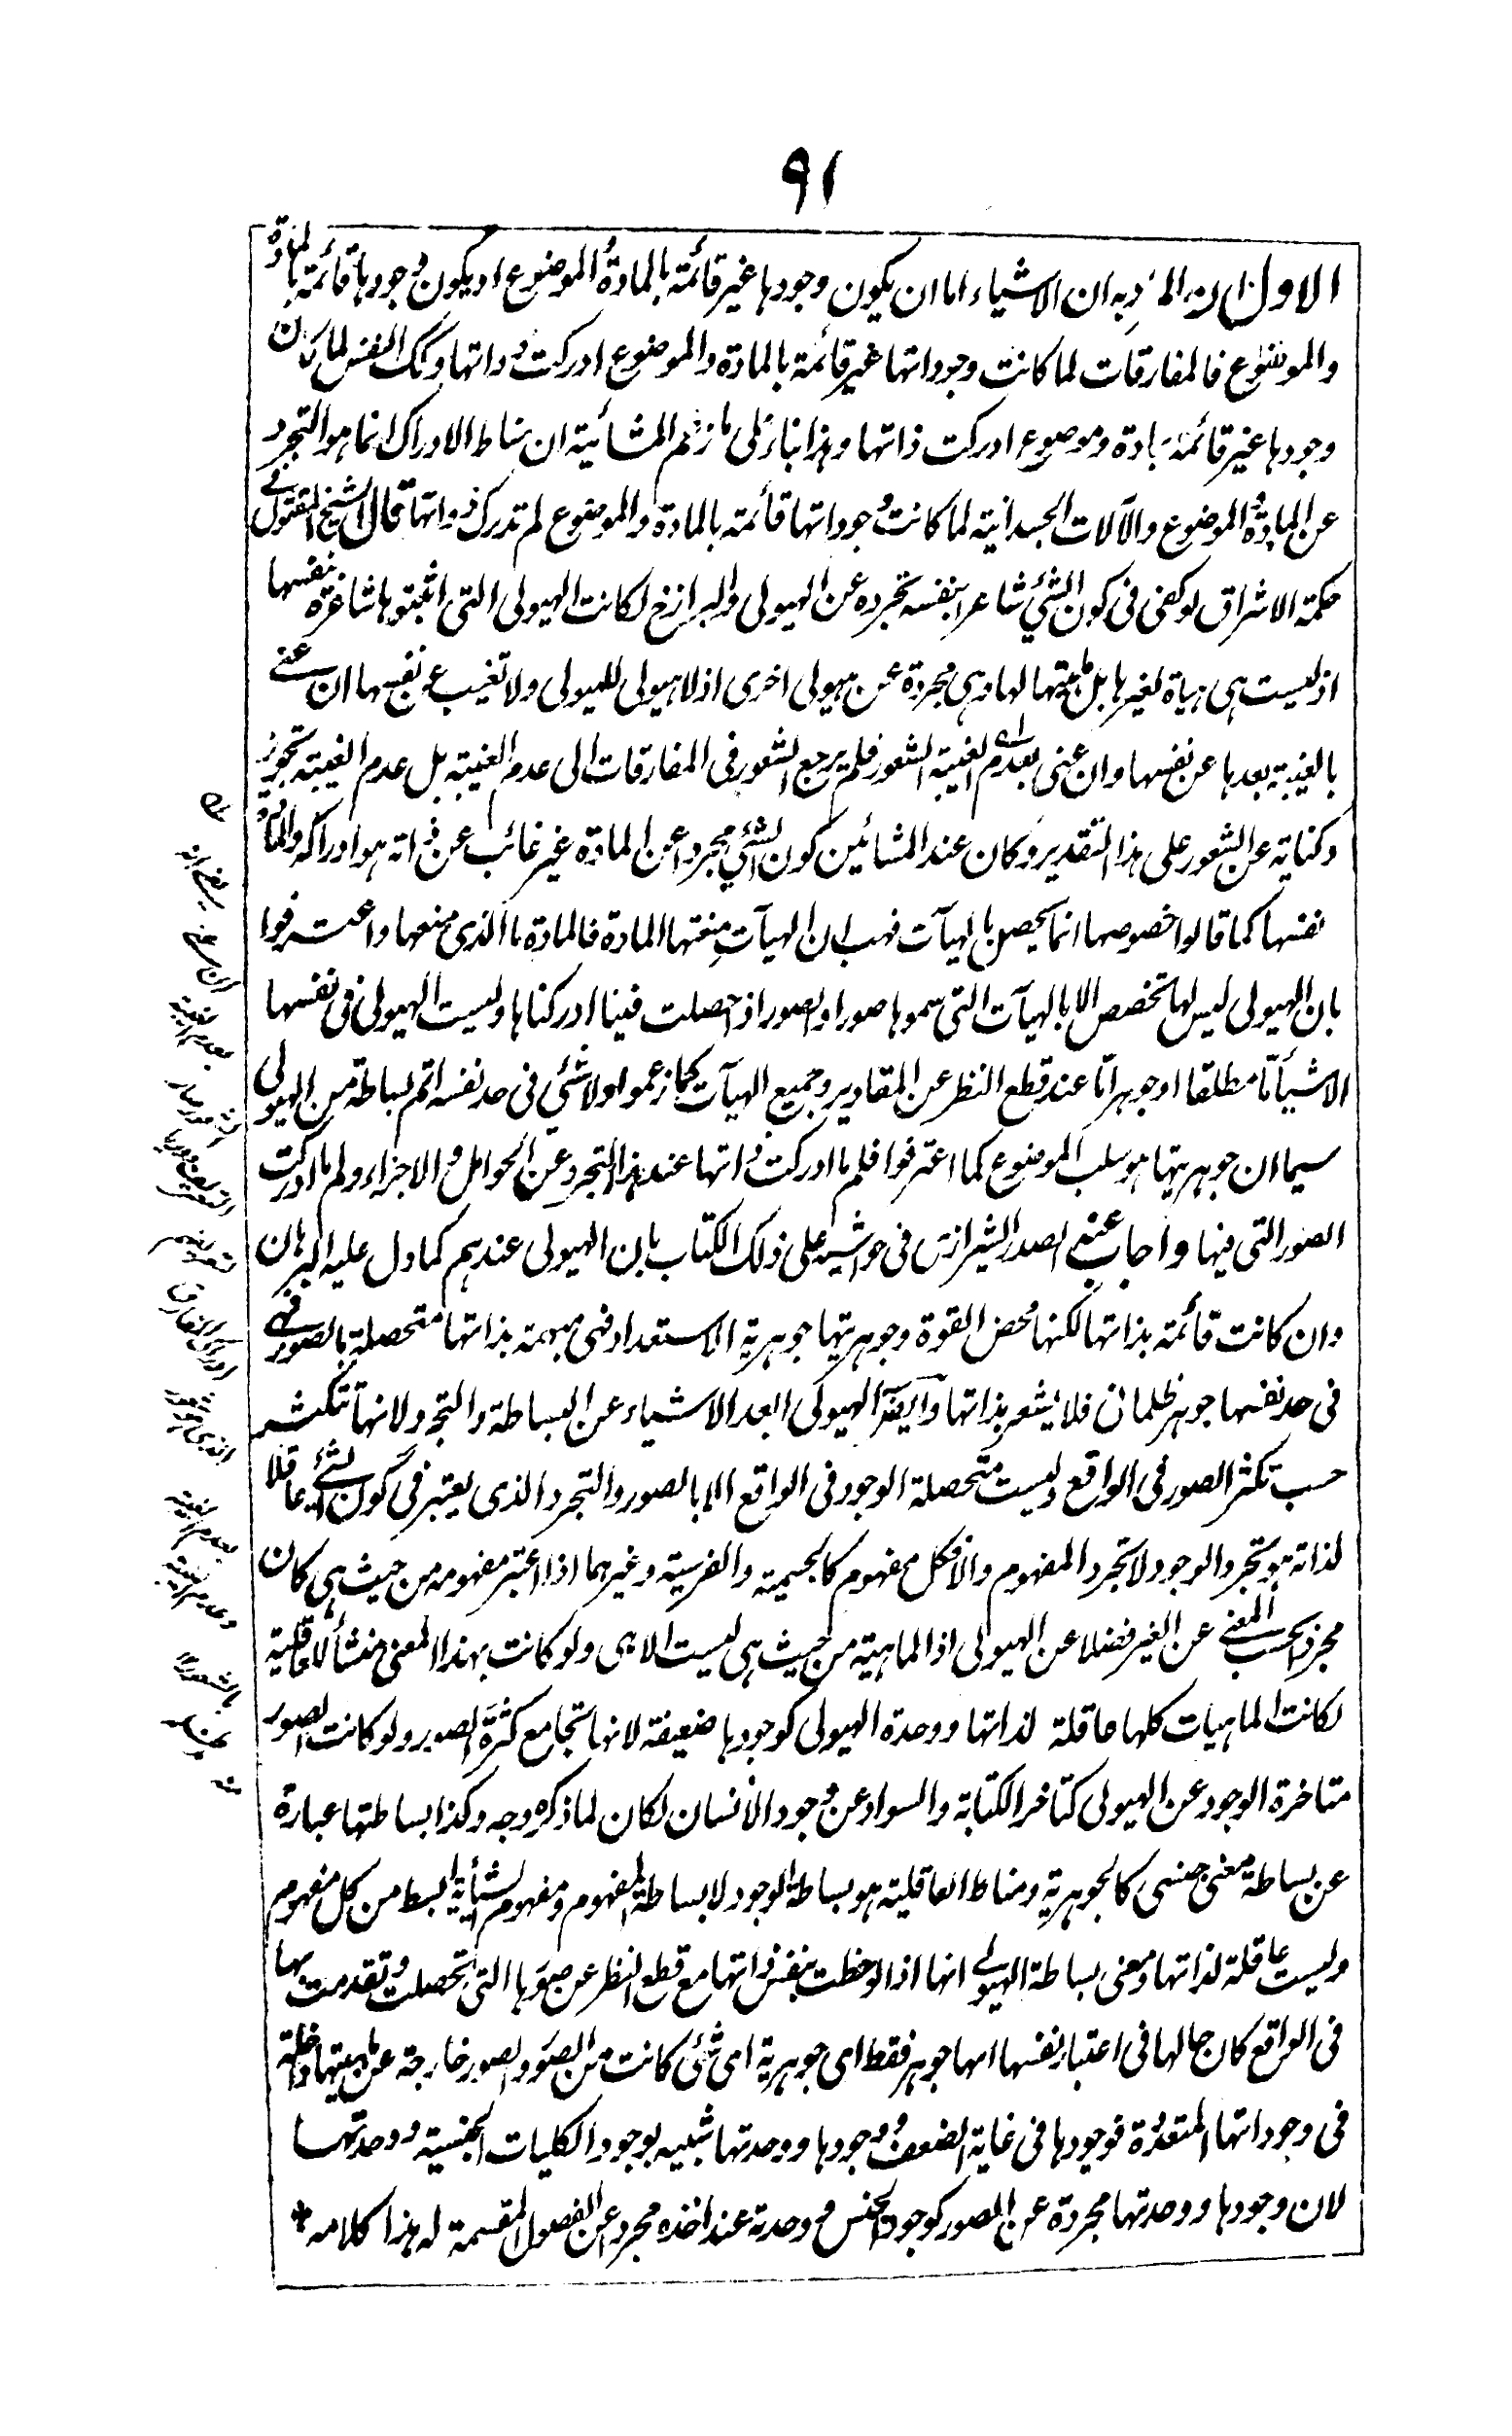 ٩١
الاول ان المراد به ان الاشياء اما ان يكون وجودها غير قائمة بالمادة والموضوع او يكون وجودها قائمة بالمادة
والموضوع فالمفارقات لما كانت وجوداتها غير قائمة بالمادة والموضوع ادركت ذواتها وتلك النفس لما كان
وجودها غير قائمة بمادة وموضوع ادركت ذاتها وهذا بناء على ما زعم المشائية ان مناط الادراك انما هو التجرد
عن المادة والموضوع والآلات الجسدانية لما كانت وجوداتها قائمة بالمادة والموضوع لم تدرك ذواتها قال الشيخ المقتول فى
حكمة الاشراق لو كفى فى كون الشئ شاعرا بنفسه تجرده عن الهيولى والبرازخ لكانت الهيولى التى اثبتوها شاعرة بنفسها
اذ ليست هى هياة لغيرها بل ماهيتها لها وهى مجردة عن هيولى اخرى اذ لا هيولى للهيولى ولا تغيب عن نفسها ان عنى
بالغيبة بعدها عن نفسها وان عنى بعدم الغيبة الشعور فلم يرجع الشعور فى المفارقات الى عدم الغيبة بل عدم الغيبة تجوز
وكناية عن الشعور على هذا التقدير وكان عند المشائين كون الشئ مجردا عن المادة غير غائب عن ذاته هو ادراكه والمادة
نفسها كما قالوا خصوصها انما يحصل بالهيآت فهب ان الهيآت منعتها المادة فالمادة ما الذى منعها واعترفوا
بان الهيولى ليس لها تخصص الا بالهيآت التى سموها صورا والصور اذا حصلت فينا ادركناها وليست الهيولى فى نفسها
الا شيأ مّا مطلقا او جوهرا مّا عند قطع النظر عن المقادير وجميع الهيآت كما زعموا ولا شئ فى حد نفسه اتم بساطة من الهيولى
سيما ان جوهريتها هو سلب الموضوع كما اعترفوا فلم ما ادركت ذاتها عند هذا التجرد عن الحوامل والاجزاء ولم ما ادركت
الصور التى فيها واجاب عنه الصدر الشيرازى فى حواشيه على ذلك الكتاب بان الهيولى عندهم كما دل عليه البرهان
وان كانت قائمة بذاتها لكنها محض القوة وجوهريتها جوهرية الاستعداد فهى مبهمة بذاتها متحصلة بالصور فهى
فى حد نفسها جوهر ظلمانى فلا يشعر بذاتها وايضا الهيولى ابعد الاشياء عن البساطة والتجرد لانها تتكثر
حسب تكثر الصور فى الواقع وليست متحصلة الوجود فى الواقع الا بالصور والتجرد الذى يعتبر فى كون الشئ عاقلا
لذاته هو تجرد الوجود لا تجرد المفهوم والا فكل مفهوم كالجسمية والفرسية وغيرهما اذا اعتبر مفهومه من حيث هى كان
مجردا بحسب المعنى عن الغير فضلا عن الهيولى اذ الماهية من حيث هى ليست الا هى ولو كانت بهذا المعنى منشأ للعاقلية
لكانت الماهيات كلها عاقلة لذاتها ووحدة الهيولى كوجودها ضعيفة لانها تجامع كثرة الصور ولو كانت الصور
متاخرة الوجود عن الهيولى كتاخر الكتابة والسواد عن وجود الانسان لكان لما ذكره وجه وكذا بساطتها عبارة
عن بساطة معنى جنسى كالجوهرية ومناط العاقلية هو بساطة الوجود لا بساطة المفهوم ومفهوم الشيأية ابسط من كل مفهوم
وليست عاقلة لذاتها ومعنى بساطة الهيولى انها اذا لوحظت بنفس ذاتها مع قطع النظر عن صورها التى تحصلت وتقدمت بها
فى الواقع كان حالها فى اعتبار نفسها انها جوهر فقط اى جوهرية اى شئ كانت من الصور والصور خارجة عن ماهيتها داخلة
فى وجوداتها المتعددة فوجودها فى غاية الضعف ووجودها ووحدتها شبيه بوجود الكليات الجنسية ووحدتها
لان وجودها ووحدتها مجردة عن الصور كوجود الجنس ووحدته عند اخذه مجردا عن الفصول المقسمة له هذا كلامه *